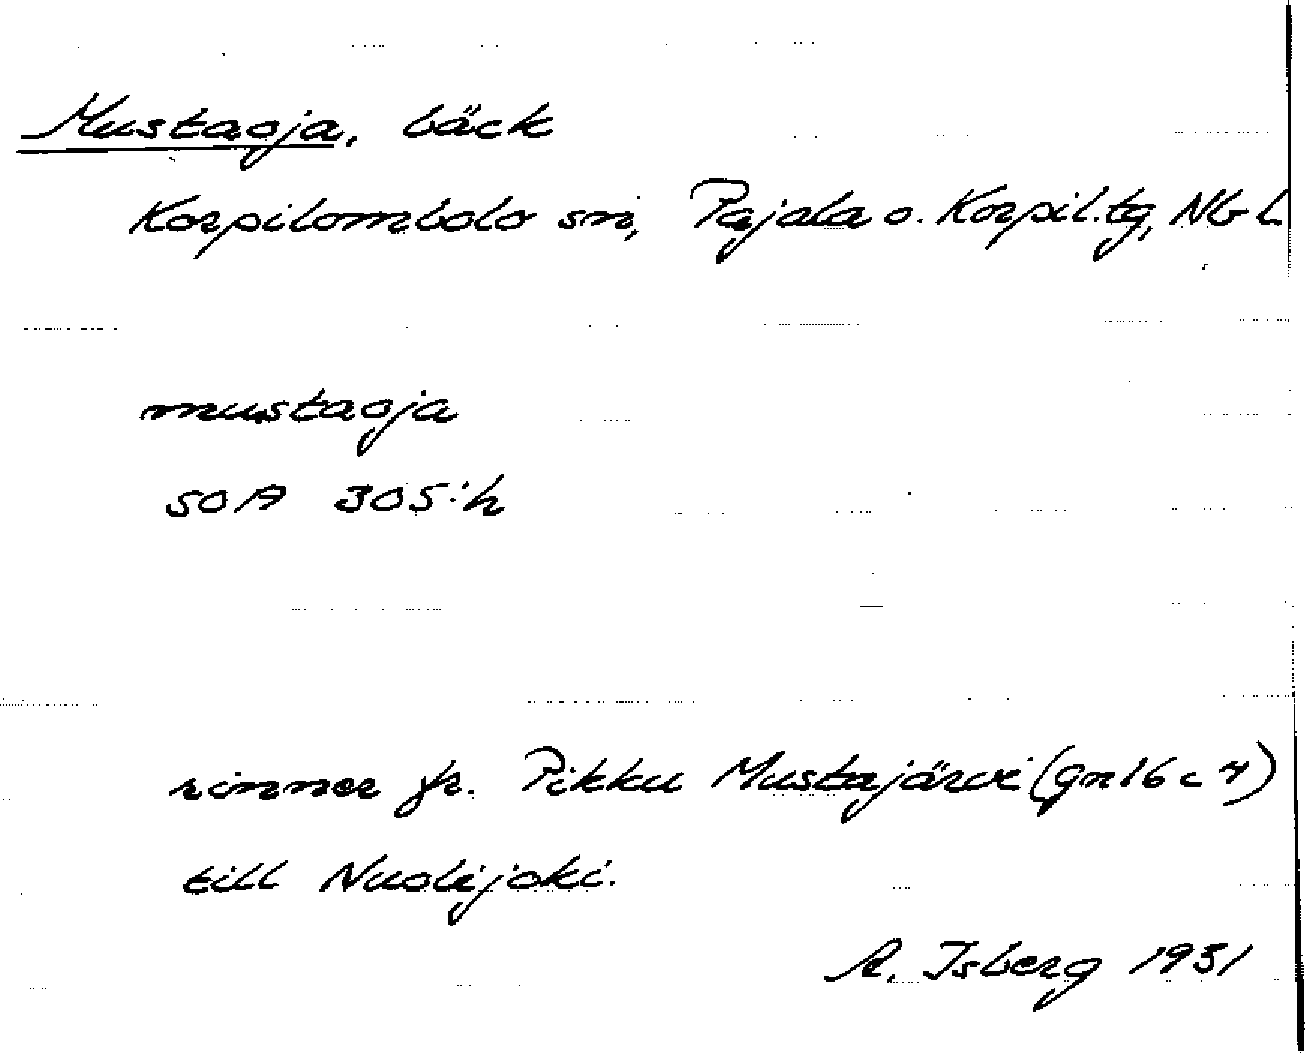 Mustaoja, bäck
Korpilombolo sn, Pajala o. Korpil. tg, Nb L
mustaoja
SOA 305:h
rinner fr. Pikku Mustajärvi (gn 16 c 4)
till Nuolijoki.
A. Isberg 1931